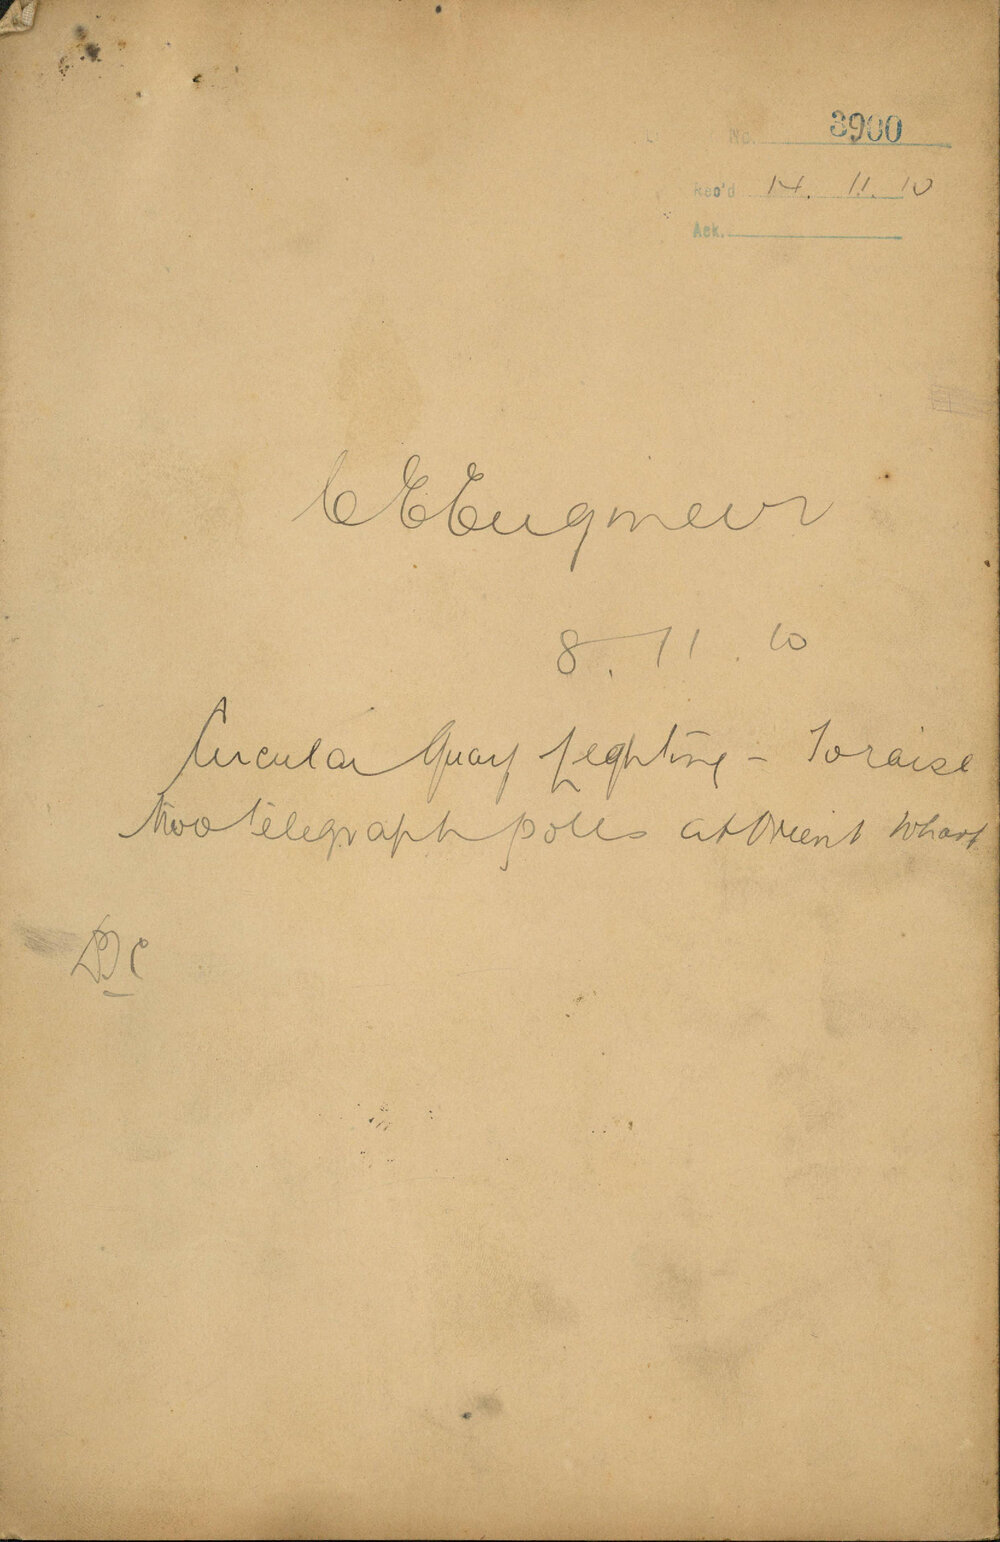 No. 3900
Rec'd 14. 11. 10
Ack.
C E Engineer
8. 11. 10
Circular Quay Lighting - To raise
two telegraph poles at Orient Wharf